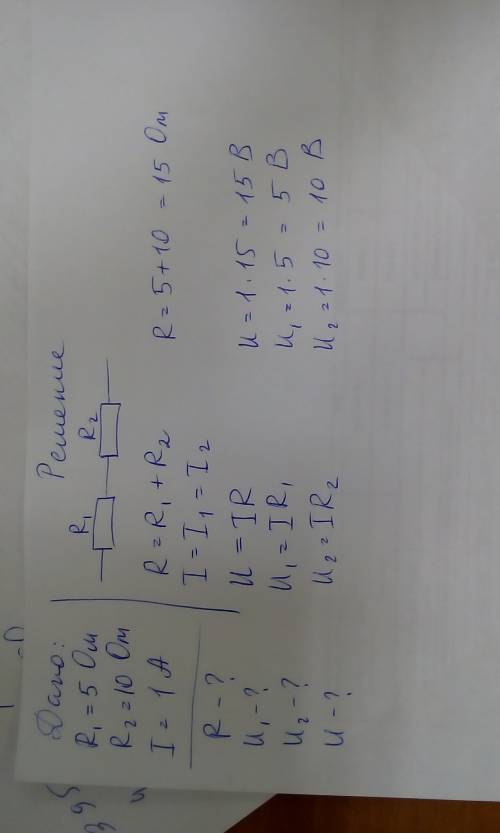 Дано:
R₁ = 5 Ом
R₂ = 10 Ом
I = 1 А
R - ?
U₁ - ?
U₂ - ?
U - ?
Решение
R₁ R₂
R = R₁ + R₂ R = 5 + 10 = 15 Ом
I = I₁ = I₂
U = IR U = 1 · 15 = 15 В
U₁ = IR₁ U₁ = 1 · 5 = 5 В
U₂ = IR₂ U₂ = 1 · 10 = 10 В